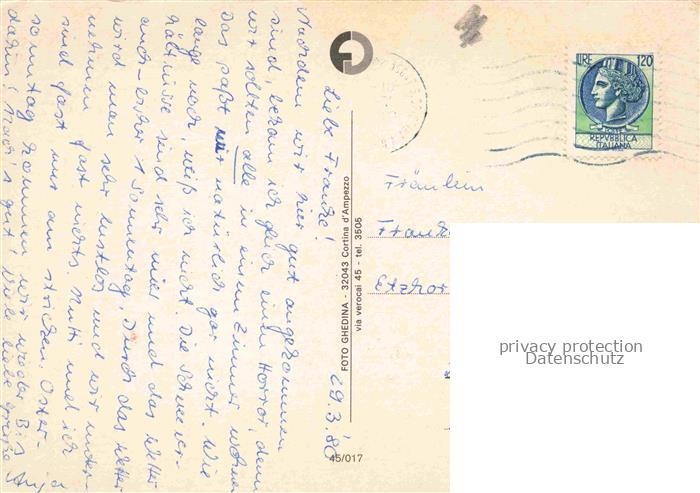 Liebe Frauke! 29.3.80
Nachdem wir hier gut angekommen
sind, bekam ich gleich einen Horror, denn
wir sollten alle in einem Zimmer wohnen
Das paßt mir natürlich gar nicht. Wie
lange noch, weiß ich nicht. Die Schneever-
hältnisse sind sehr mies und das Wetter
auch - erst 1 Sonnentag. Durch das Wetter
wird man sehr lustlos und wir unter-
nehmen fast nichts. Mutti und ich
sind fast nur am stricken. Oster-
sonntag kommen wir wieder. Bis
dahin! Mach's gut Viele liebe Grüße
FOTO GHEDINA - 32043 Cortina d'Ampezzo
via verocai 45 - tel. 3505
45/017
LIRE 120
REPVBBLICA
ITALIANA
Fräulein
Frauke
Etzhor
privacy protection
Datenschutz